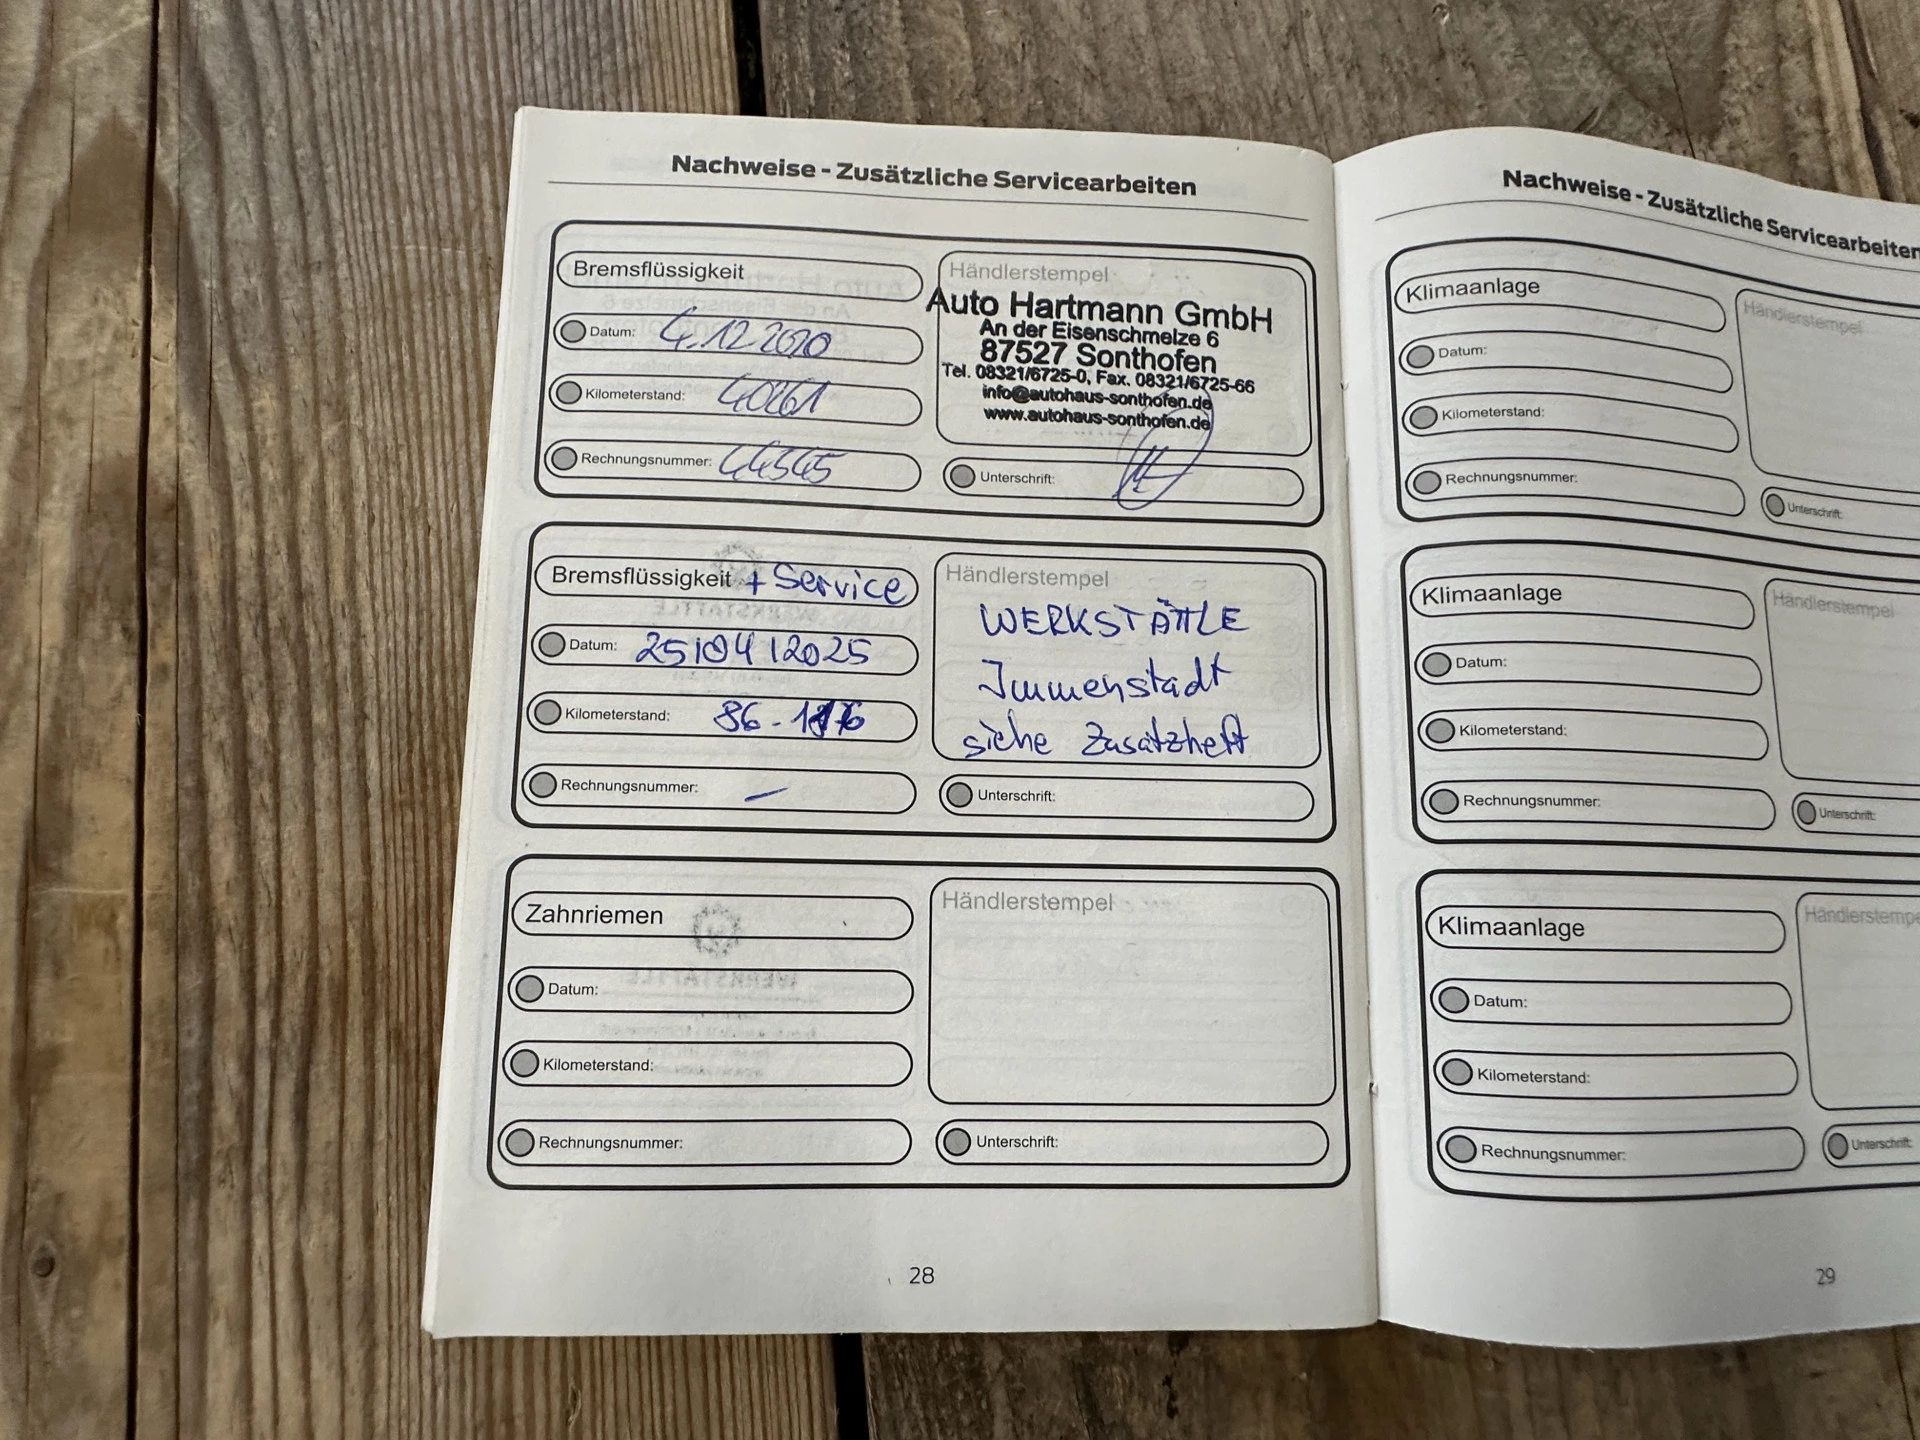 Nachweise - Zusätzliche Servicearbeiten
Bremsflüssigkeit
Datum: 4.12.2020
Kilometerstand: 40261
Rechnungsnummer: 44545
Händlerstempel
Auto Hartmann GmbH
An der Eisenschmelze 6
87527 Sonthofen
Tel. 08321/6725-0, Fax. 08321/6725-66
info@autohaus-sonthofen.de
www.autohaus-sonthofen.de
Unterschrift:
Bremsflüssigkeit + Service
Datum: 25/04/2025
Kilometerstand:
Rechnungsnummer: –
Händlerstempel
WERKSTÄTTLE
Immenstadt
siehe Zusatzheft
Unterschrift:
Zahnriemen
Datum:
Kilometerstand:
Rechnungsnummer:
Händlerstempel
Unterschrift:
28
Nachweise - Zusätzliche Servicearbeiten
Klimaanlage
Datum:
Kilometerstand:
Rechnungsnummer:
Händlerstempel
Unterschrift:
Klimaanlage
Datum:
Kilometerstand:
Rechnungsnummer:
Händlerstempel
Unterschrift:
Klimaanlage
Datum:
Kilometerstand:
Rechnungsnummer:
Händlerstempe
Unterschrift:
29